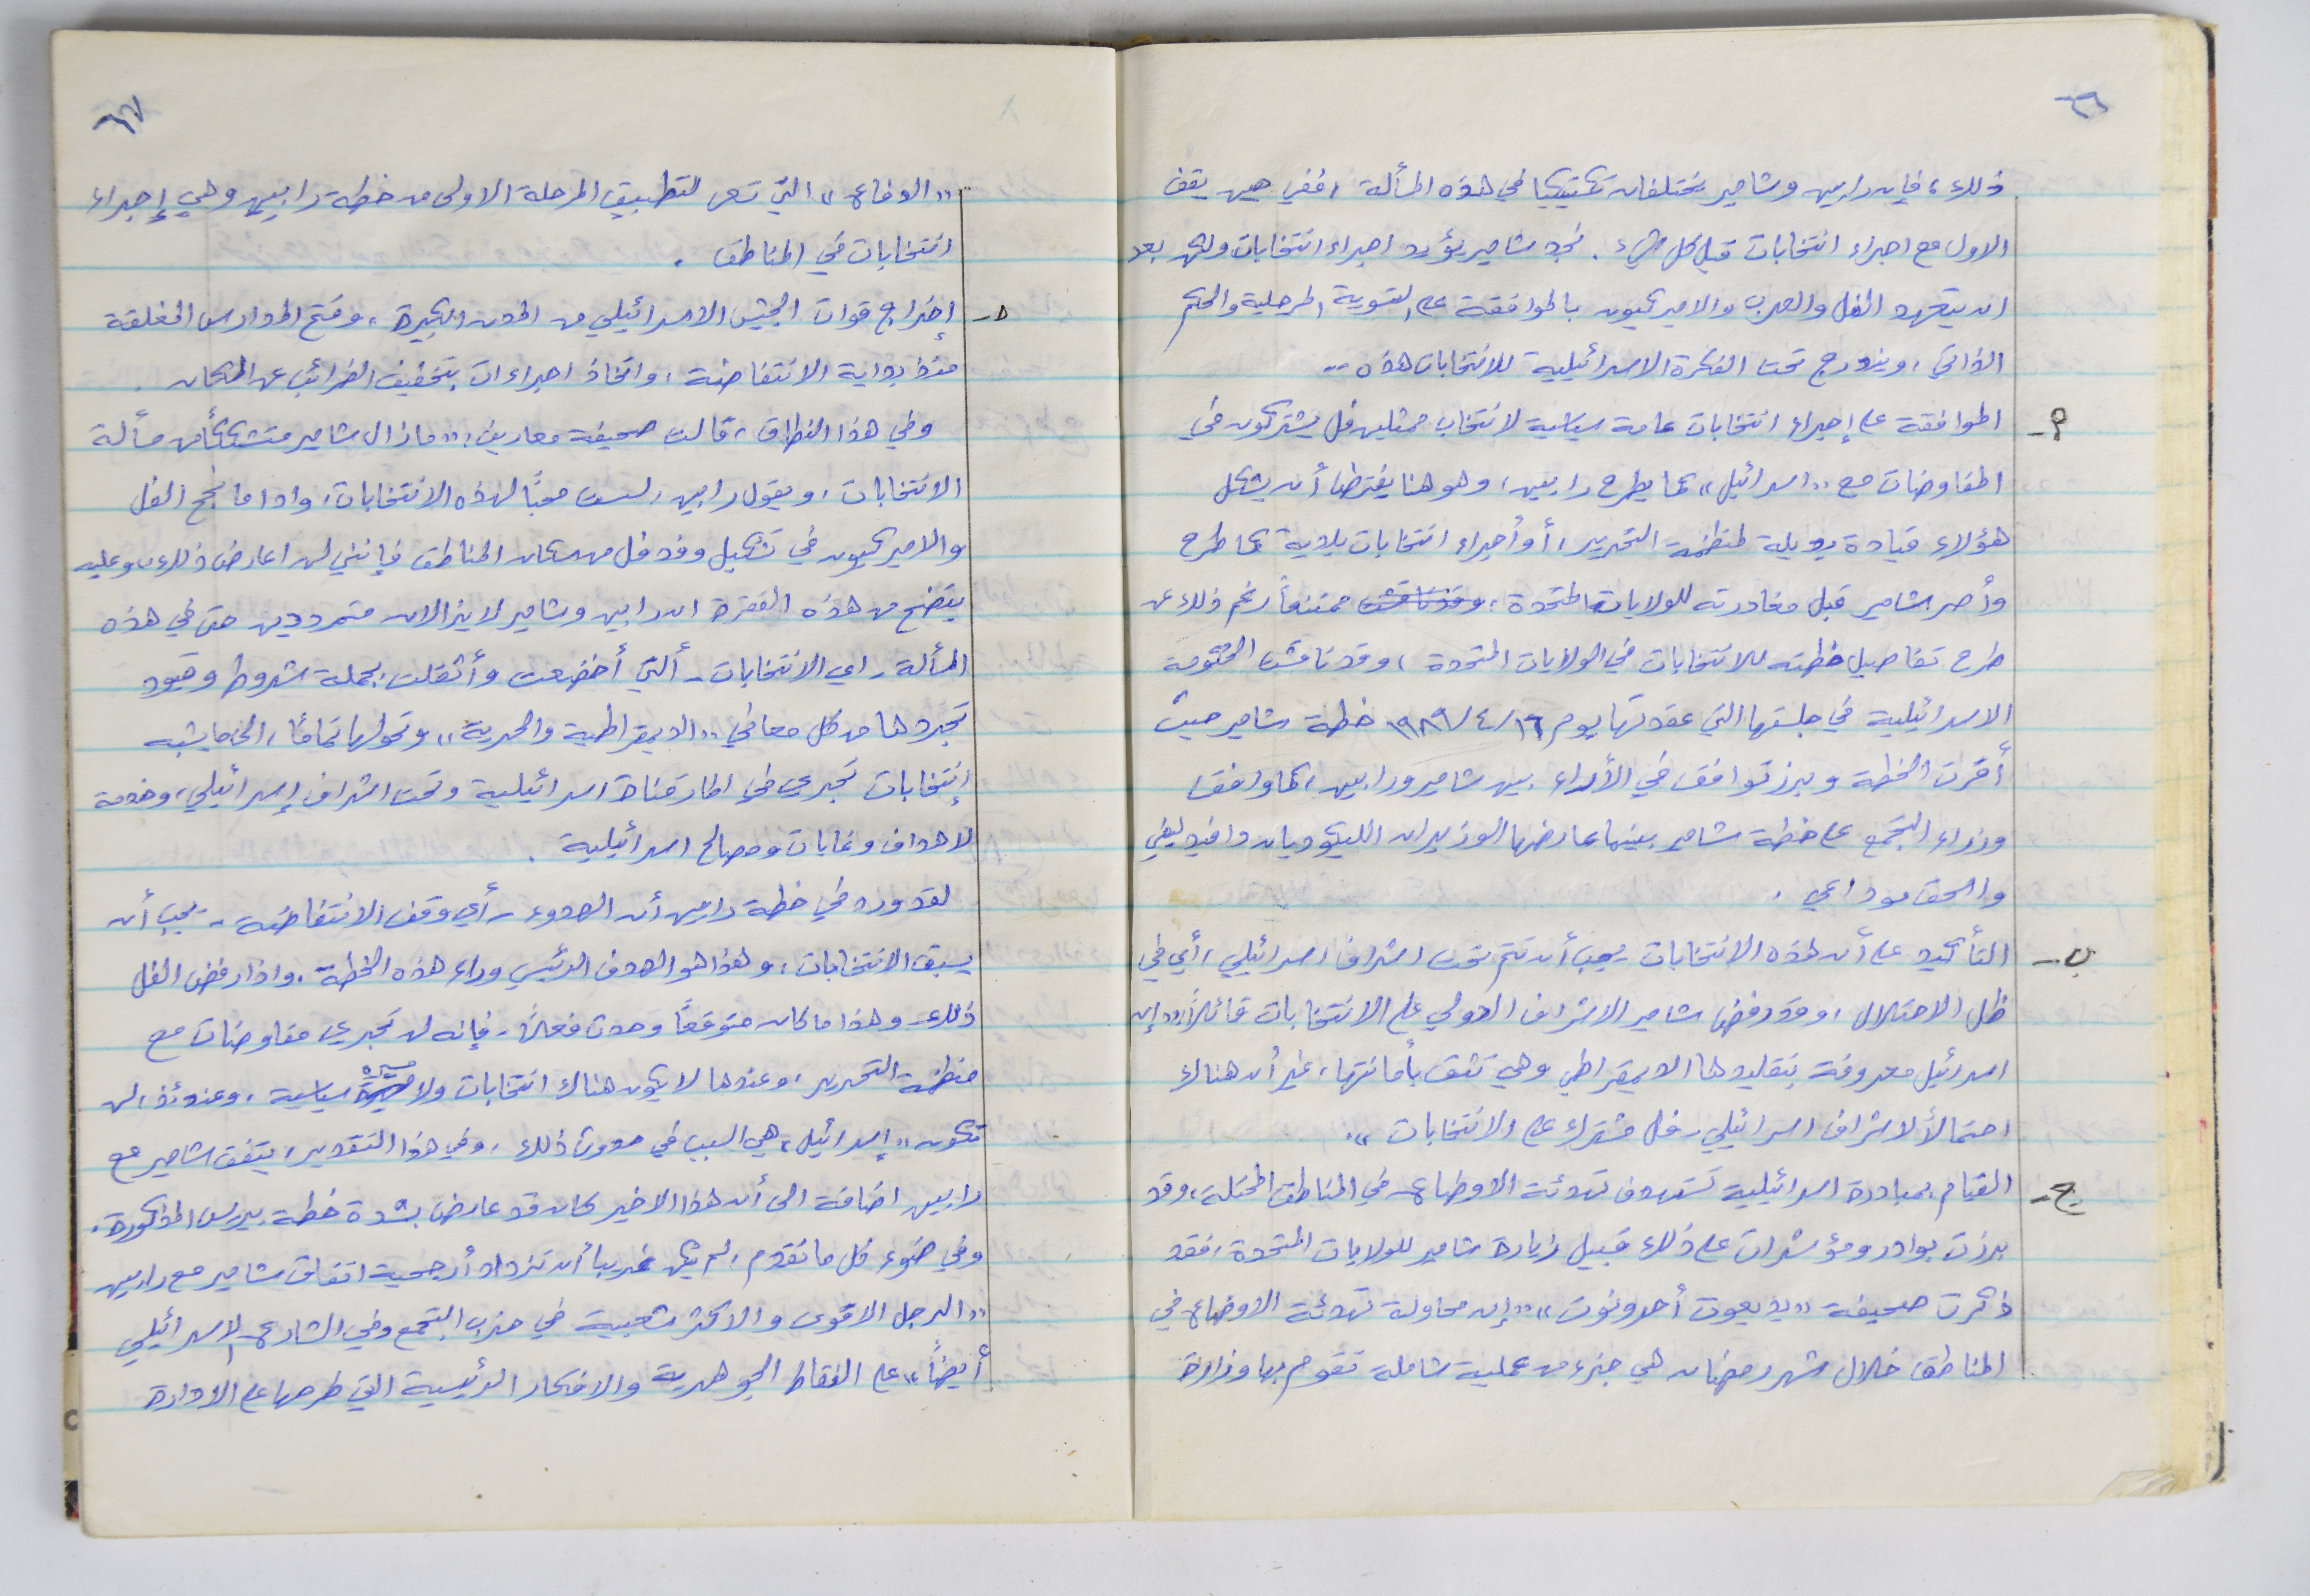 ٦٦
ذلك، فإن رابين وشامير يختلفان تكتيكيا في هذه المسألة، ففي حين يقف
الاول مع اجراء انتخابات قبل كل شيء. نجد شامير يؤيد اجراء انتخابات ولكن بعد
ان يتعهد الفل والعرب والاميركيون بالموافقة على التسوية المرحلية والحكم
الذاتي، ويندرج تحت الفكرة الاسرائيلية للانتخابات هذه --
أ- الموافقة على إجراء انتخابات عامة سياسية لانتخاب ممثلين فل يشتركون في
المفاوضات مع «اسرائيل» كما يطرح رابين، وهو هنا يفترض أن يشكل
هؤلاء قيادة بديلة لمنظمة التحرير، أو أجراء انتخابات بلدية كما طرح
وأصر شامير قبل مغادرته للولايات المتحدة، وقد ناقشت ممتنعاً رغم ذلك عن
طرح تفاصيل خطته للانتخابات في الولايات المتحدة، وقد ناقشت الحكومة
الاسرائيلية في جلستها التي عقدتها يوم ١٦/٤/١٩٨٩ خطة شامير حيث
أقرت الخطة وبرز توافق في الأراء بين شامير ورابين، كما وافق
وزراء التجمع على خطة شامير بينما عارضها الوزيران الليكوديان دافيد ليفي
واسحق موداعي.
ب- التأكيد على أن هذه الانتخابات يجب أن تتم تحت اشراف اسرائيلي، أي في
ظل الاحتلال، وقد رفض شامير الاشراف الدولي على الانتخابات قائلاً: «إن
اسرائيل معروفة بتقليدها الديمقراطي وهي تثق بأمانتها، غير أن هناك
احتمالاً لاشراف اسرائيلي - فل مشترك على الانتخابات».
ج- القيام بمبادرة اسرائيلية تستهدف تهدئة الاوضاع في المناطق المحتلة، وقد
برزت بوادر ومؤشرات على ذلك قبيل زيارة شامير للولايات المتحدة، فقد
ذكرت صحيفة «يديعوت أحرونوت» «إن محاولة تهدئة الاوضاع في
المناطق خلال شهر رمضان هي جزء من عملية شاملة تقوم بها وزارة
٦٧
«الدفاع» التي تسعى لتطبيق المرحلة الاولى من خطة رابين وهي إجراء
انتخابات في المناطق.
د- إخراج قوات الجيش الاسرائيلي من المدن الكبيرة، وفتح المدارس المغلقة
منذ بداية الانتفاضة، واتخاذ اجراءات بتخفيف الضرائب عن السكان.
وفي هذا النطاق، قالت صحيفة معاريف: «ما زال شامير متشككاً من مسألة
الانتخابات، ويقول رابين، لست محباً لهذه الانتخابات، واذا ما نجح الفل
والاميركيون في تشكيل وفد فل من سكان المناطق فإنني لن اعارض ذلك» وعليه
يتضح من هذه الفقرة ان رابين وشامير لا يزالان مترددين حتى في هذه
المسألة - اي الانتخابات - ألتي أخضعت وأثقلت بجملة شروط وقيود
تجردها من كل معاني «الديمقراطية والحرية» وتحولها تماماً، الى ما يشبه
إنتخابات تجري في اطار قناة اسرائيلية وتحت اشراف إسرائيلي، وخدمة
لاهداف وغايات ومصالح اسرائيلية.
لقد ورد في خطة رابين أن الهدوء - أي وقف الانتفاضة - يجب أن
يسبق الانتخابات، وهذا هو الهدف الرئيسي وراء هذه الخطة. واذا رفض الفل
ذلك - وهذا ما كان متوقعاً وحدث فعلاً - فإنه لن تجري مفاوضات مع
منظمة التحرير، وعندها لا يكون هناك انتخابات ولا مسيرة سياسية، وعندئذ، لن
تكون «إسرائيل» هي السبب في حدوث ذلك، وفي هذا التقدير، يتفق شامير مع
رابين اضافة الى أن هذا الاخير كان قد عارض بشدة خطة بيرس المذكورة.
وفي ضوء كل ما تقدم، لم يكن غريباً أن تزداد أرجحية اتفاق شامير مع رابين
«الرجل الاقوى والاكثر شعبية في حزب التجمع وفي الشارع الاسرائيلي
أيضاً» على النقاط الجوهرية والافكار الرئيسية التي طرحها على الادارة